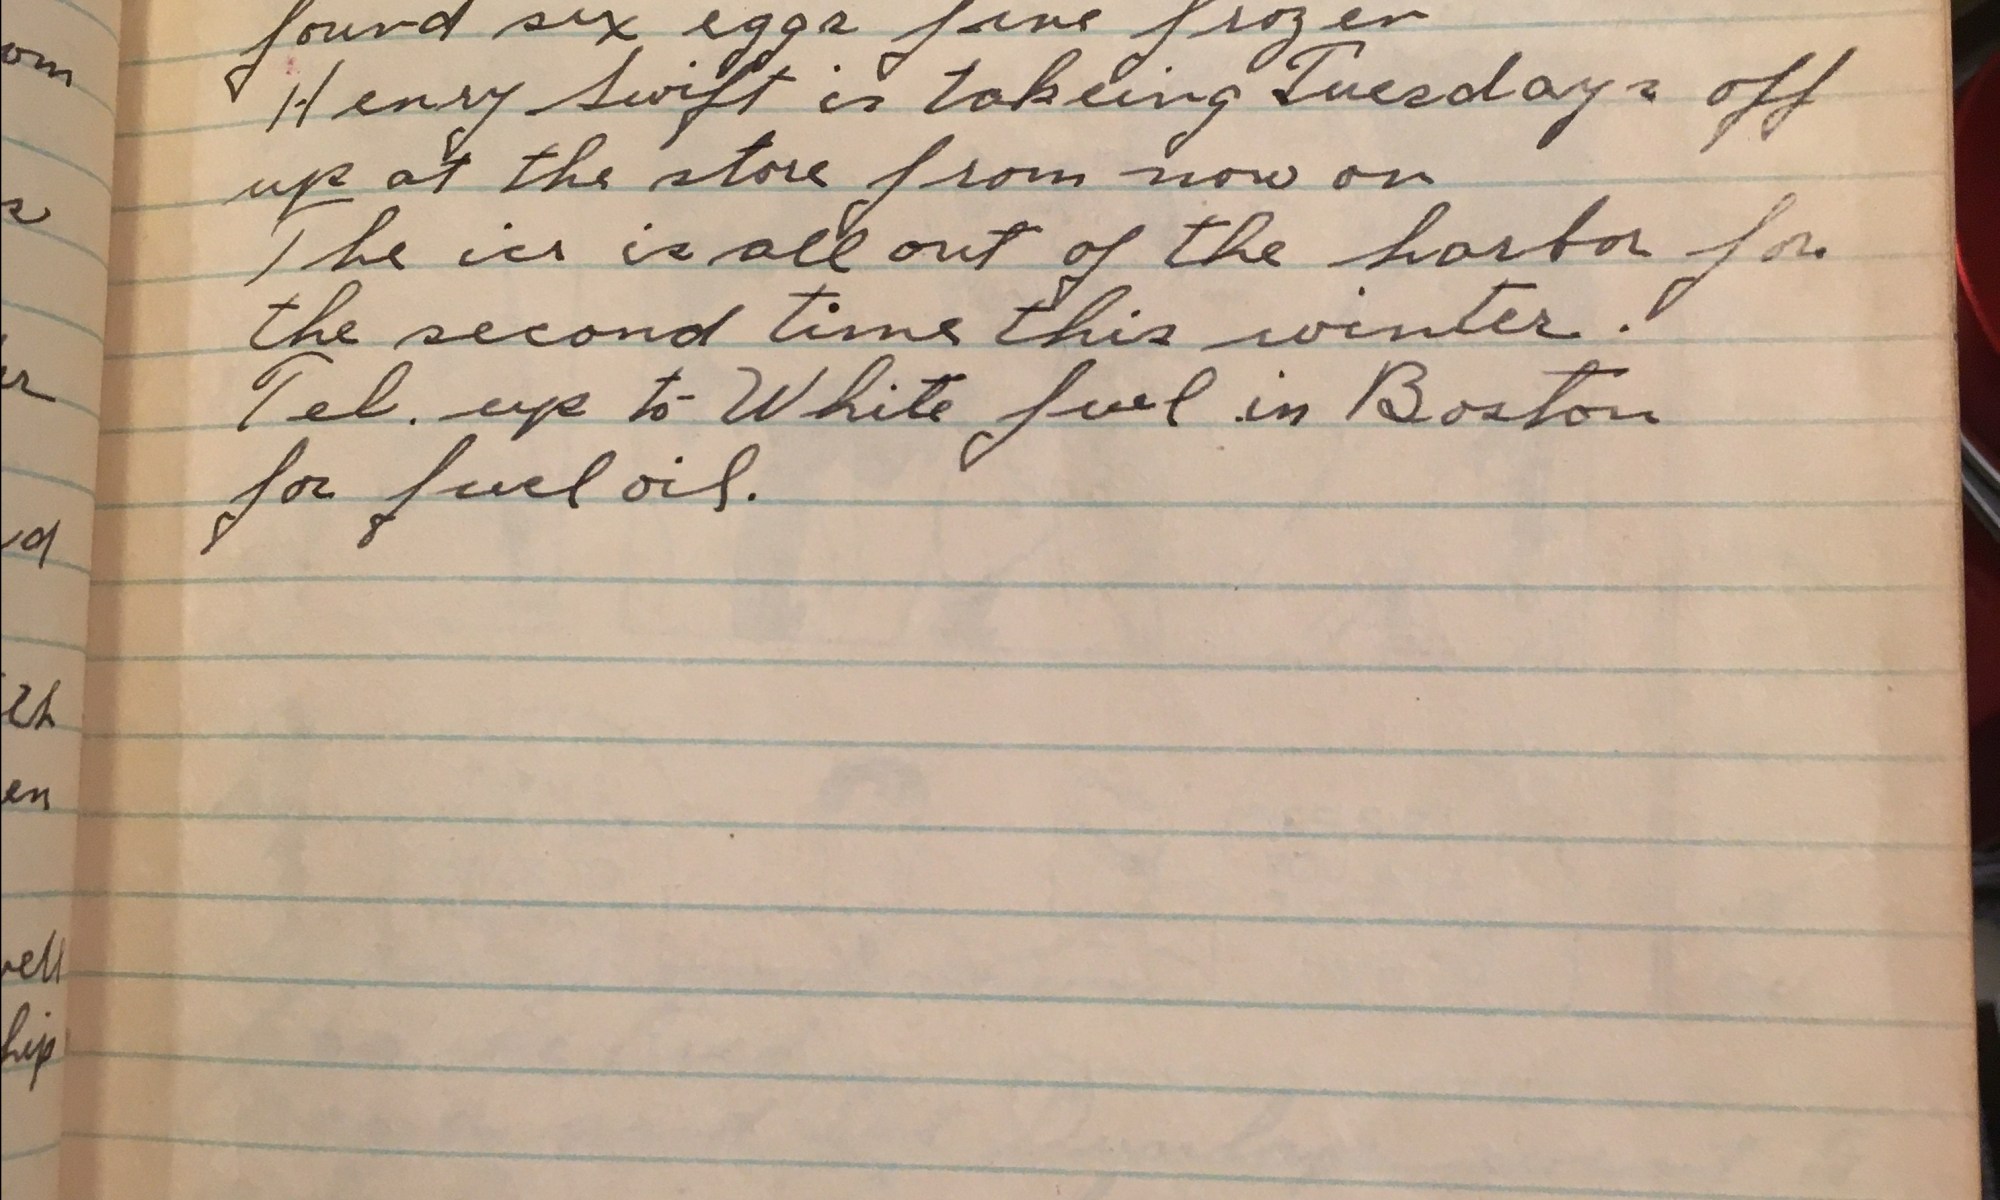 found six eggs five frozen
Henry Swift is takeing Tuesdays off
up at the store from now on
The ice is all out of the harbor for
the second time this winter.
Tel. up to White fuel in Boston
for fuel oil.
om
er
d
en
vell
hip